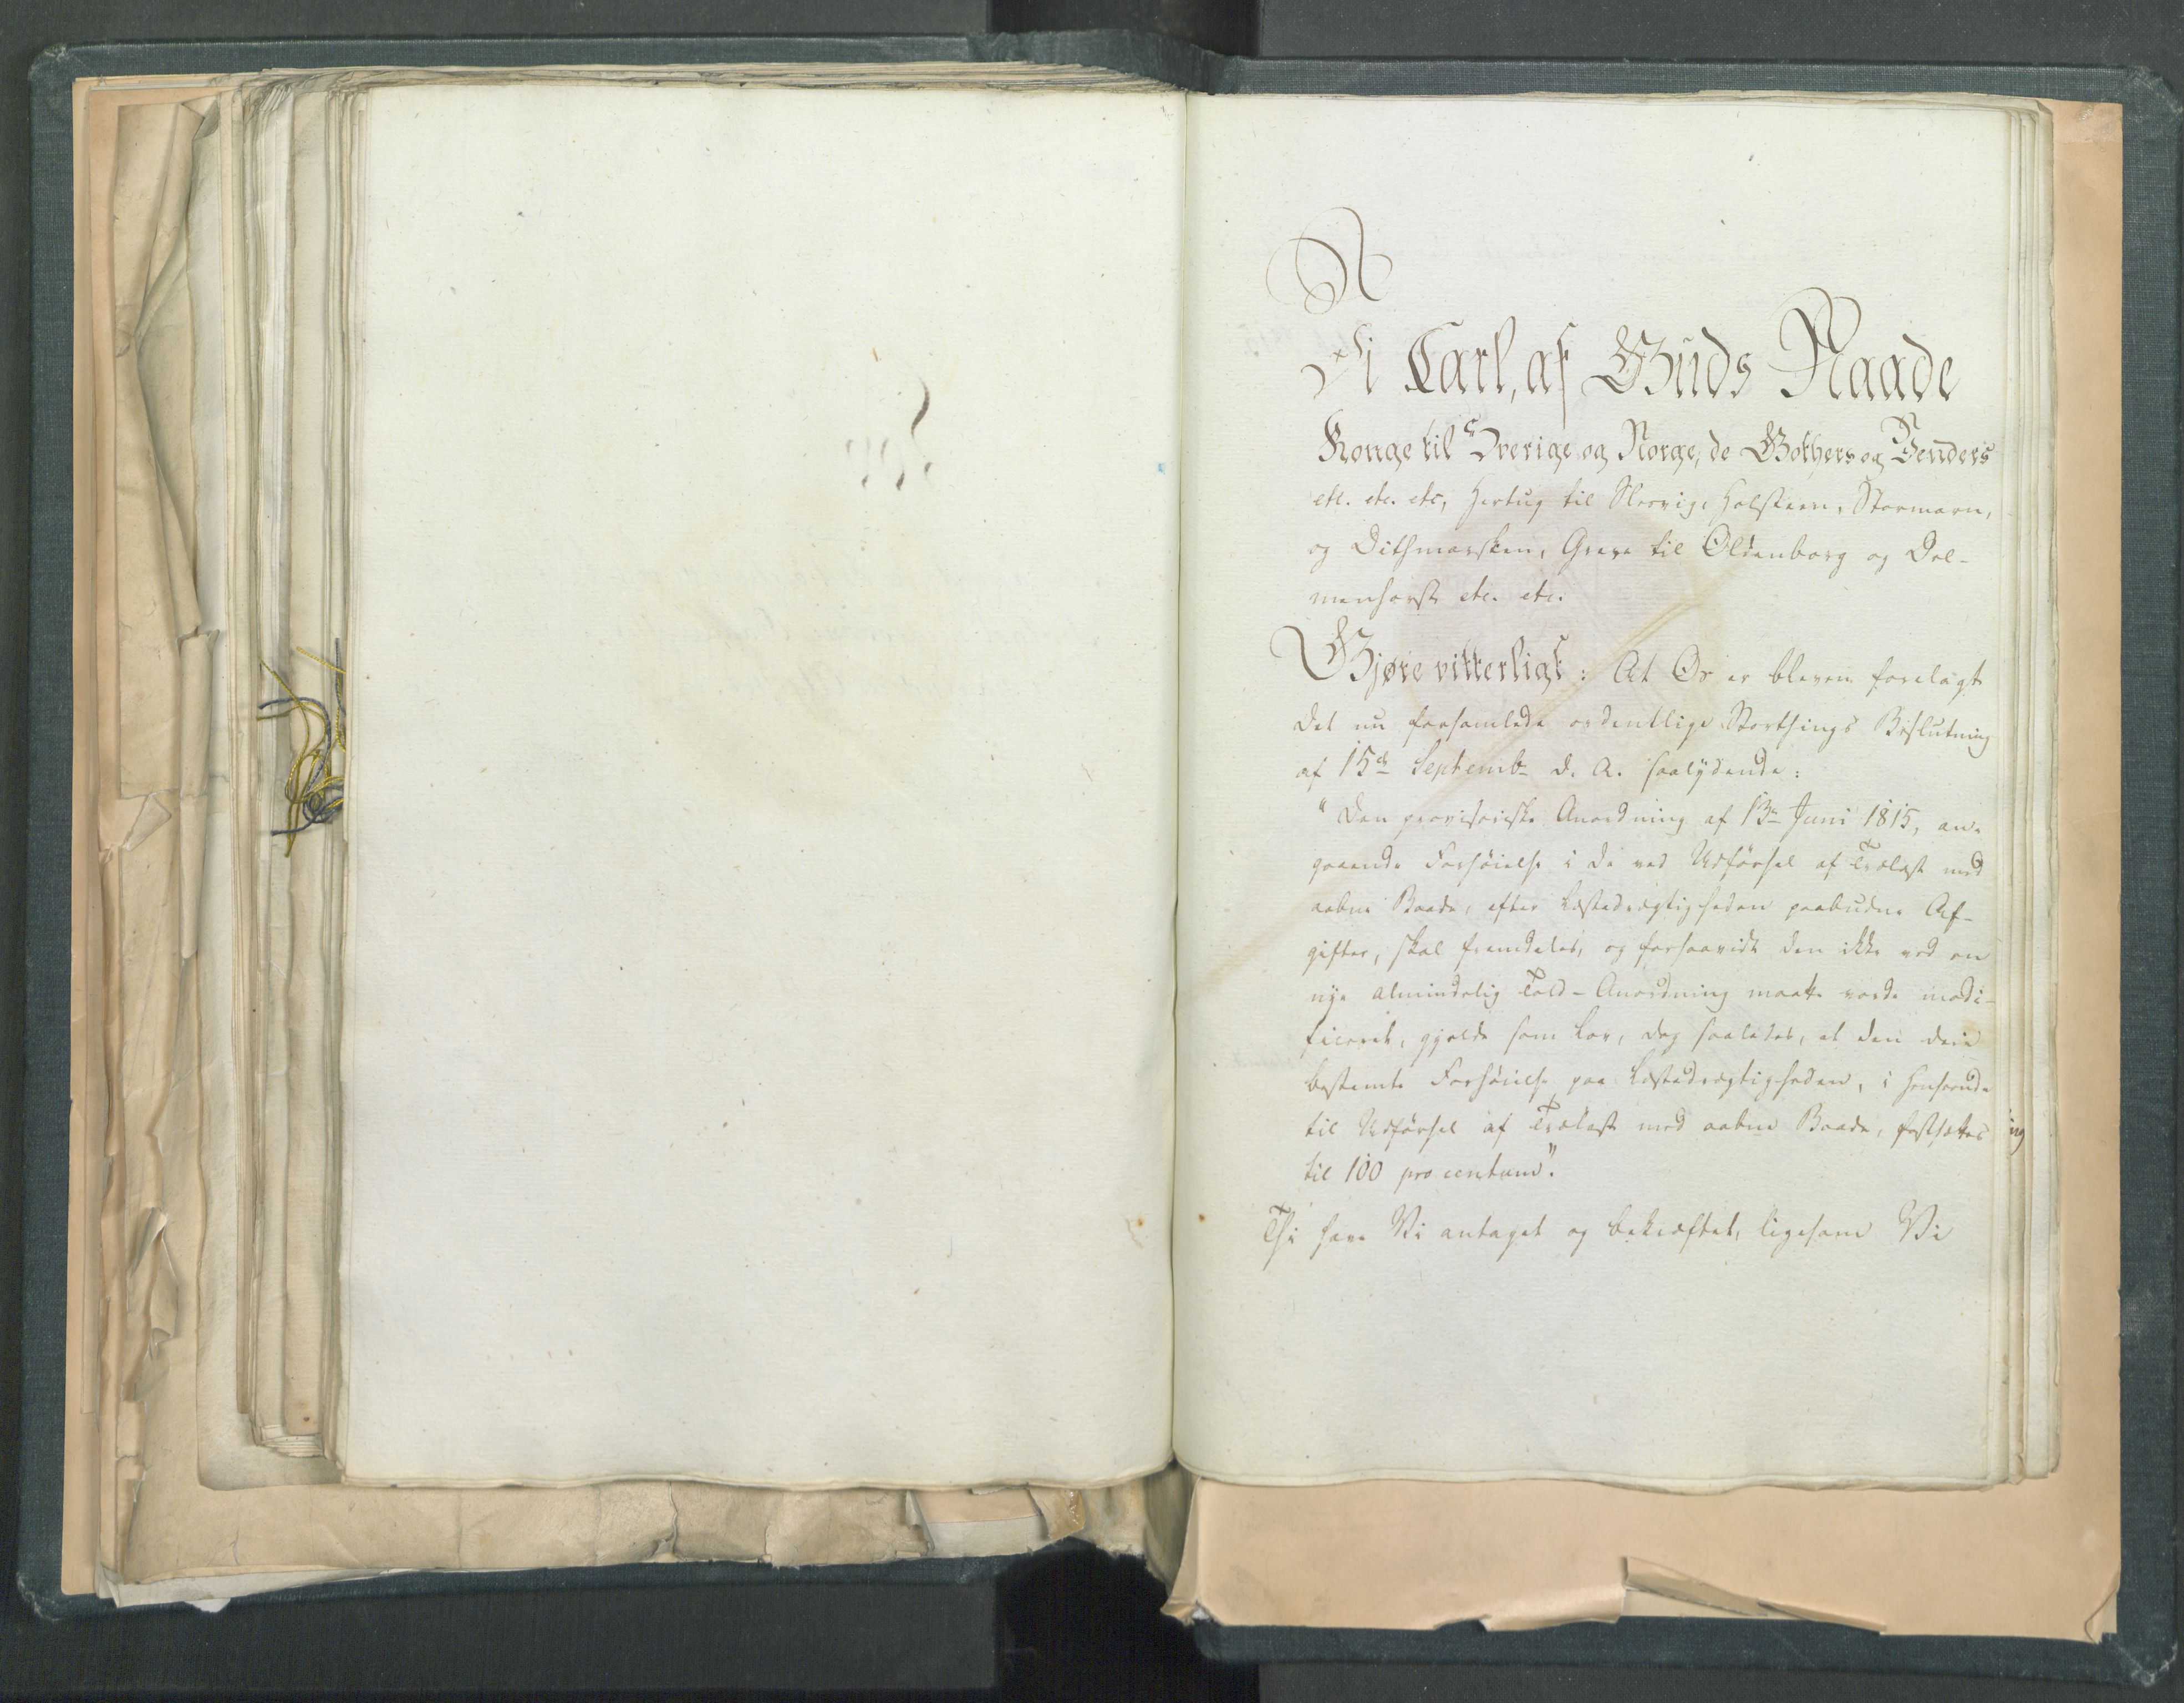 Vi Carl, af Guds Naade
Konge til Sverige og Norge, de Gothers og Venders
etc. etc. etc, Hertug til Slesvig, Holsteen, Stormarn,
og Dithmarsken, Greve til Oldenborg og Del-
menhorst etc. etc.
Gjøre vitterligt: At Os er bleven forelagt
Det nu forsamlede ordentlige Storthings Beslutning
af 15de Septemb. d. A. saalydende:
"Den provisoriske Anordning af 13de Juni 1815, an-
gaaende Forhöielse i de ved Udförsel af Trælast med
aabne Baade, efter Læstedrægtigheden paabudne Af-
gifter, skal fremdeles, og forsaavidt den ikke ved en
nye almindelig Told-Anordning maatte vorde modi-
ficeret, gjelde som Lov, dog saaledes, at den deri
bestemte Forhöielse paa Læstedrægtigheden, i Henseende
til Udförsel af Trælast med aabne Baade, fastsættes
til 100 pro centum".
Thi have Vi antaget og bekræftet, ligesom Vi